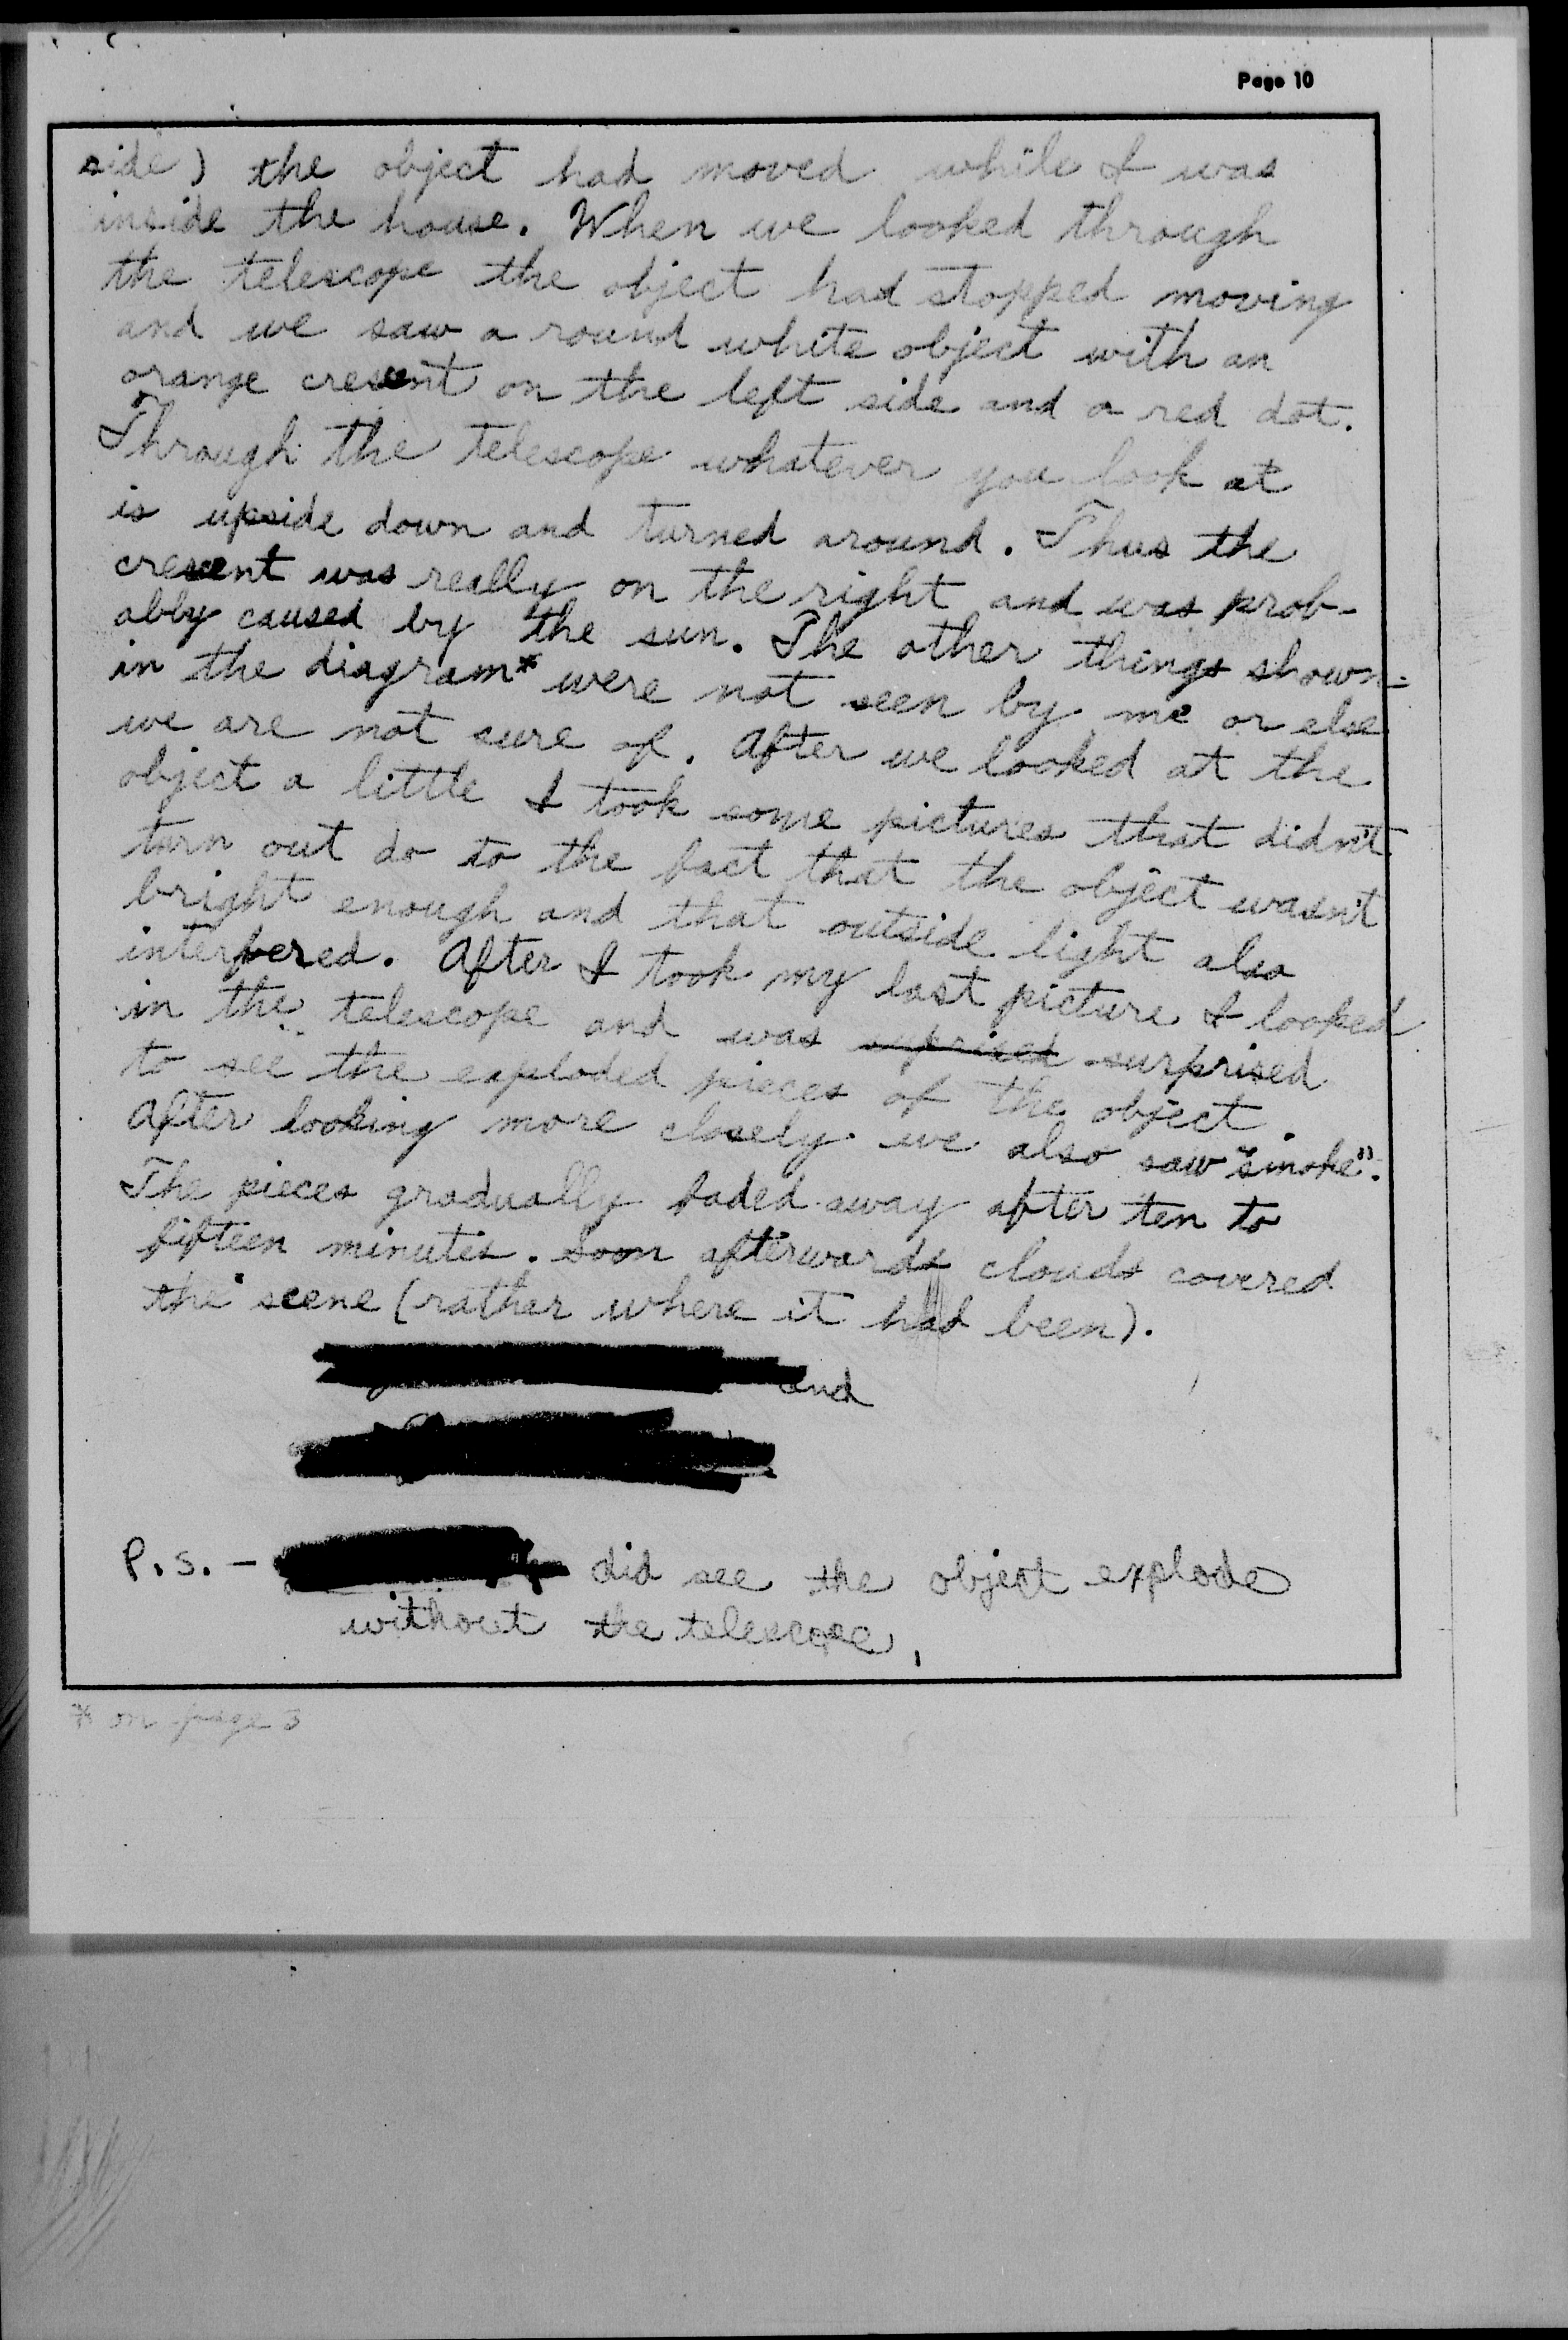 Page 10
side) the object had moved while I was
inside the house. When we looked through
the telescope the object had stopped moving
and we saw a round white object with an
orange cresent on the left side and a red dot.
Through the telescope whatever you look at
is upside down and turned around. Thus the
cresent was really on the right and was prob-
ably caused by the sun. The other things shown
in the diagram* were not seen by me or else
we are not sure of. After we looked at the
object a little I took some pictures that didn't
turn out do to the fact that the object wasn't
bright enough and that outside light also
interfered. After I took my last picture I looked
in the telescope and was surprised
to see the exploded pieces of the object.
After looking more closely we also saw "smoke".
The pieces gradually faded away after ten to
fifteen minutes. Soon afterwards clouds covered
the scene (rather where it had been).
and
P.S. - did see the object explode
without the telescope.
* on page 3